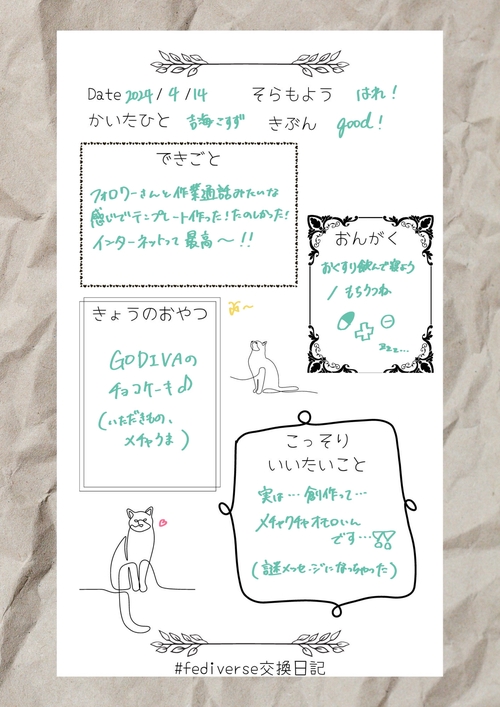 Date 2024/4/14 そらもよう はれ!
かいたひと 海こすず きぶん good!
できごと
フォロワーさんと作業通話みたいな
感じでテンプレート作った!たのしかった!
インターネットって最高〜!!
おんがく
おくすり飲んで寝よう
/もちうつね
zzz...
きょうのおやつ
GODIVAの
チョコケーキ♪
(いただきもの、
メチャうま)
こっそり
いいたいこと
実は…創作って…
メチャクチャオモロいん
です…
(謎メッセージになっちゃった)
#fediverse交換日記